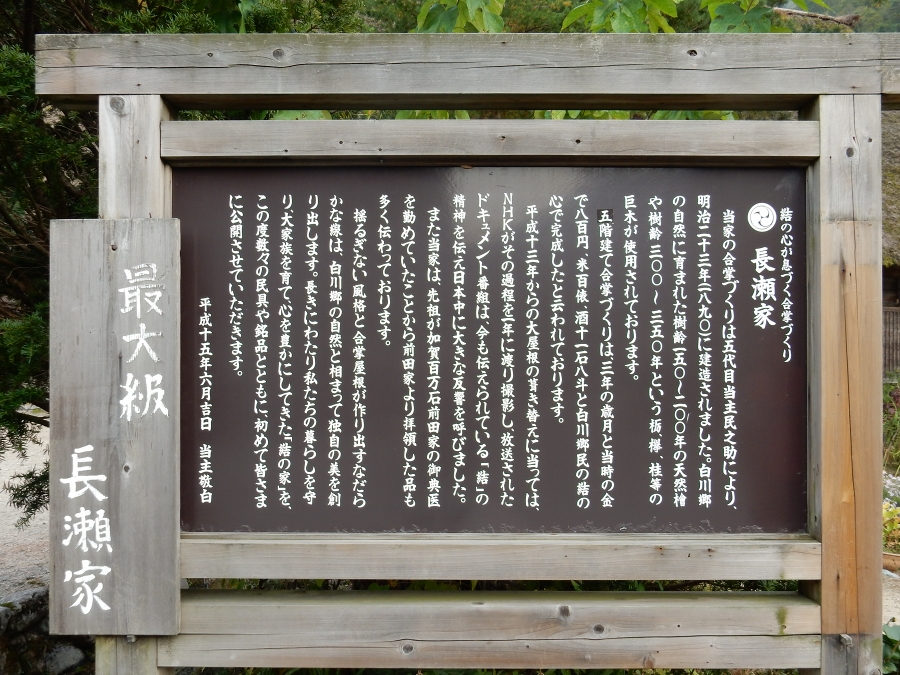 結の心が息づく合掌づくり
長瀬家
当家の合掌づくりは五代目当主民之助により、
明治二十三年(一八九〇)に建造されました。白川郷
の自然に育まれた樹齢一五〇〜二〇〇年の天然檜
や樹齢三〇〇〜三五〇年という栃、欅、桂等の
巨木が使用されております。
五階建て合掌づくりは、三年の歳月と当時の金
で八百円、米百俵、酒十一石八斗と白川郷民の結の
心で完成したと云われております。
平成十三年からの大屋根の葺き替えに当っては、
NHKがその過程を一年に渡り撮影し、放送された
ドキュメント番組は、今も伝えられている「結」の
精神を伝え日本中に大きな反響を呼びました。
また当家は、先祖が加賀百万石前田家の御典医
を勤めていたことから前田家より拝領した品も
多く伝わっております。
揺るぎない風格と合掌屋根が作り出すなだら
かな線は、白川郷の自然と相まって独自の美を創
り出します。長きにわたり私たちの暮らしを守
り、大家族を育て、心を豊かにしてきた「結の家」を、
この度数々の民具や銘品とともに、初めて皆さま
に公開させていただきます。
平成十五年六月吉日 当主敬白
最大級
長瀬家